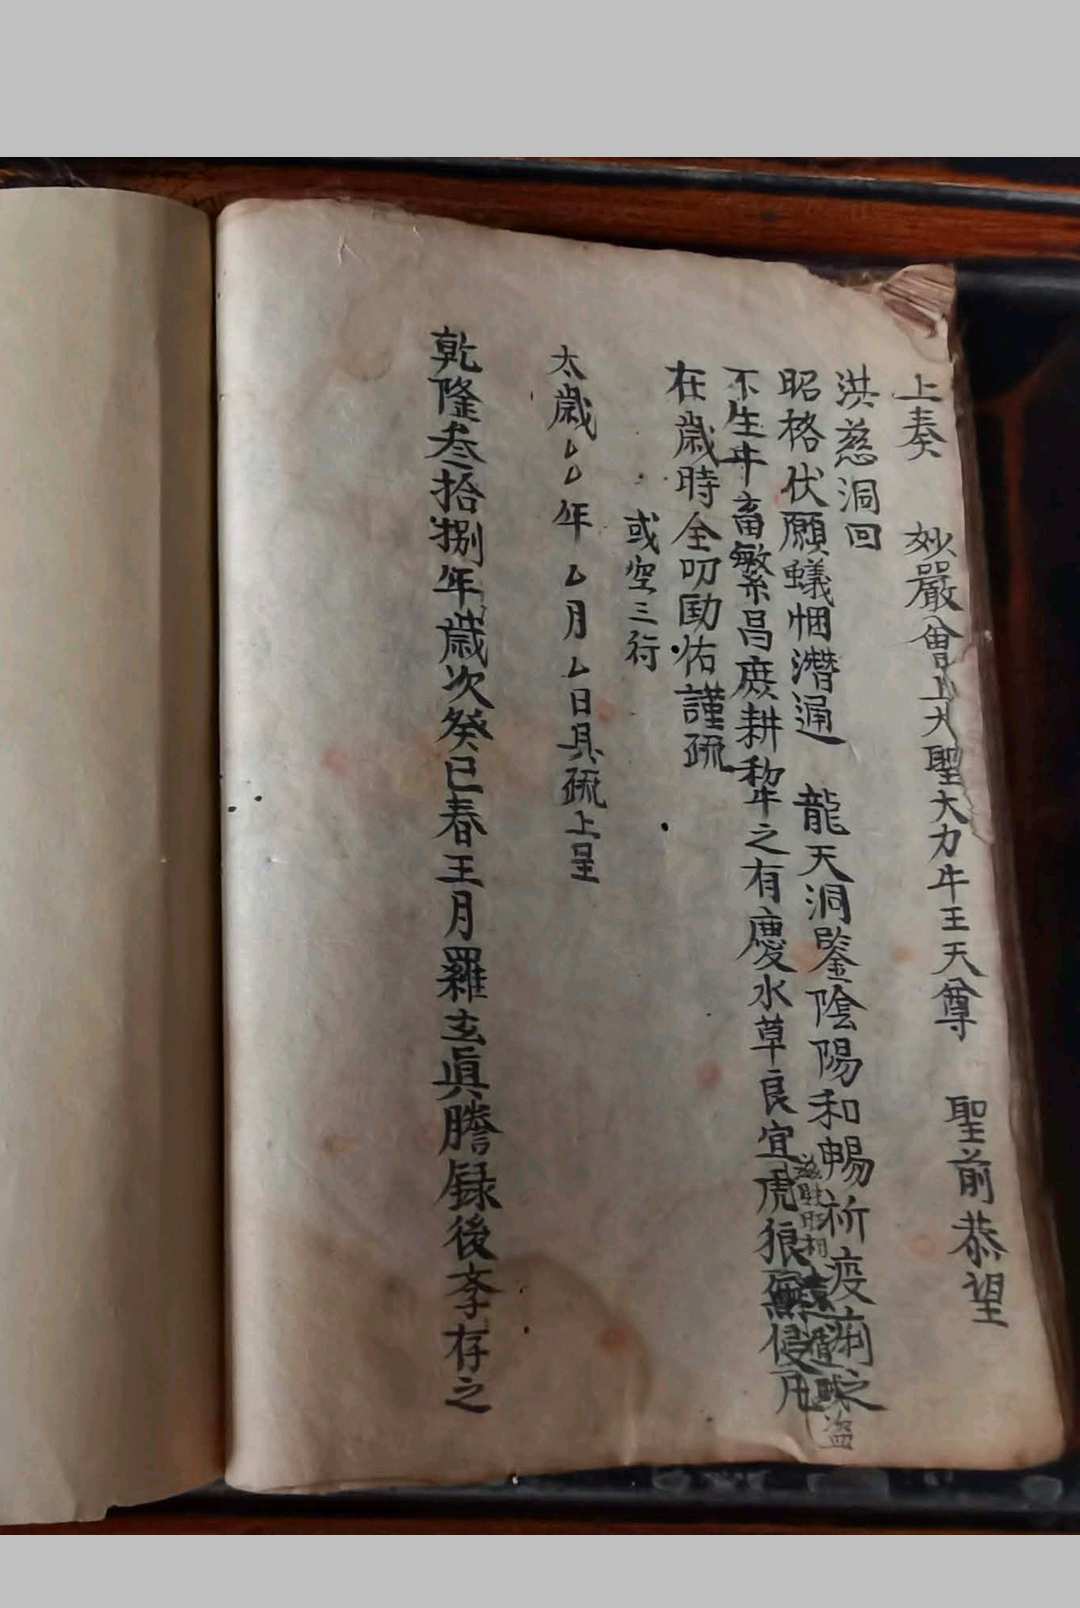 上奏　妙嚴會上大聖大力牛王天尊　聖前恭望
洪慈洞回
昭格伏願蟻悃潛通　龍天洞鑒陰陽和暢祈疫痢之
不生牛畜繁昌庶耕犂之有慶水草良宜虎狼無侵凡
盜
在歲時全叨匡佑謹疏
或空三行
太歲厶厶年厶月厶日具疏上呈
乾隆叁拾捌年歲次癸巳春王月羅玄眞謄録後李存之